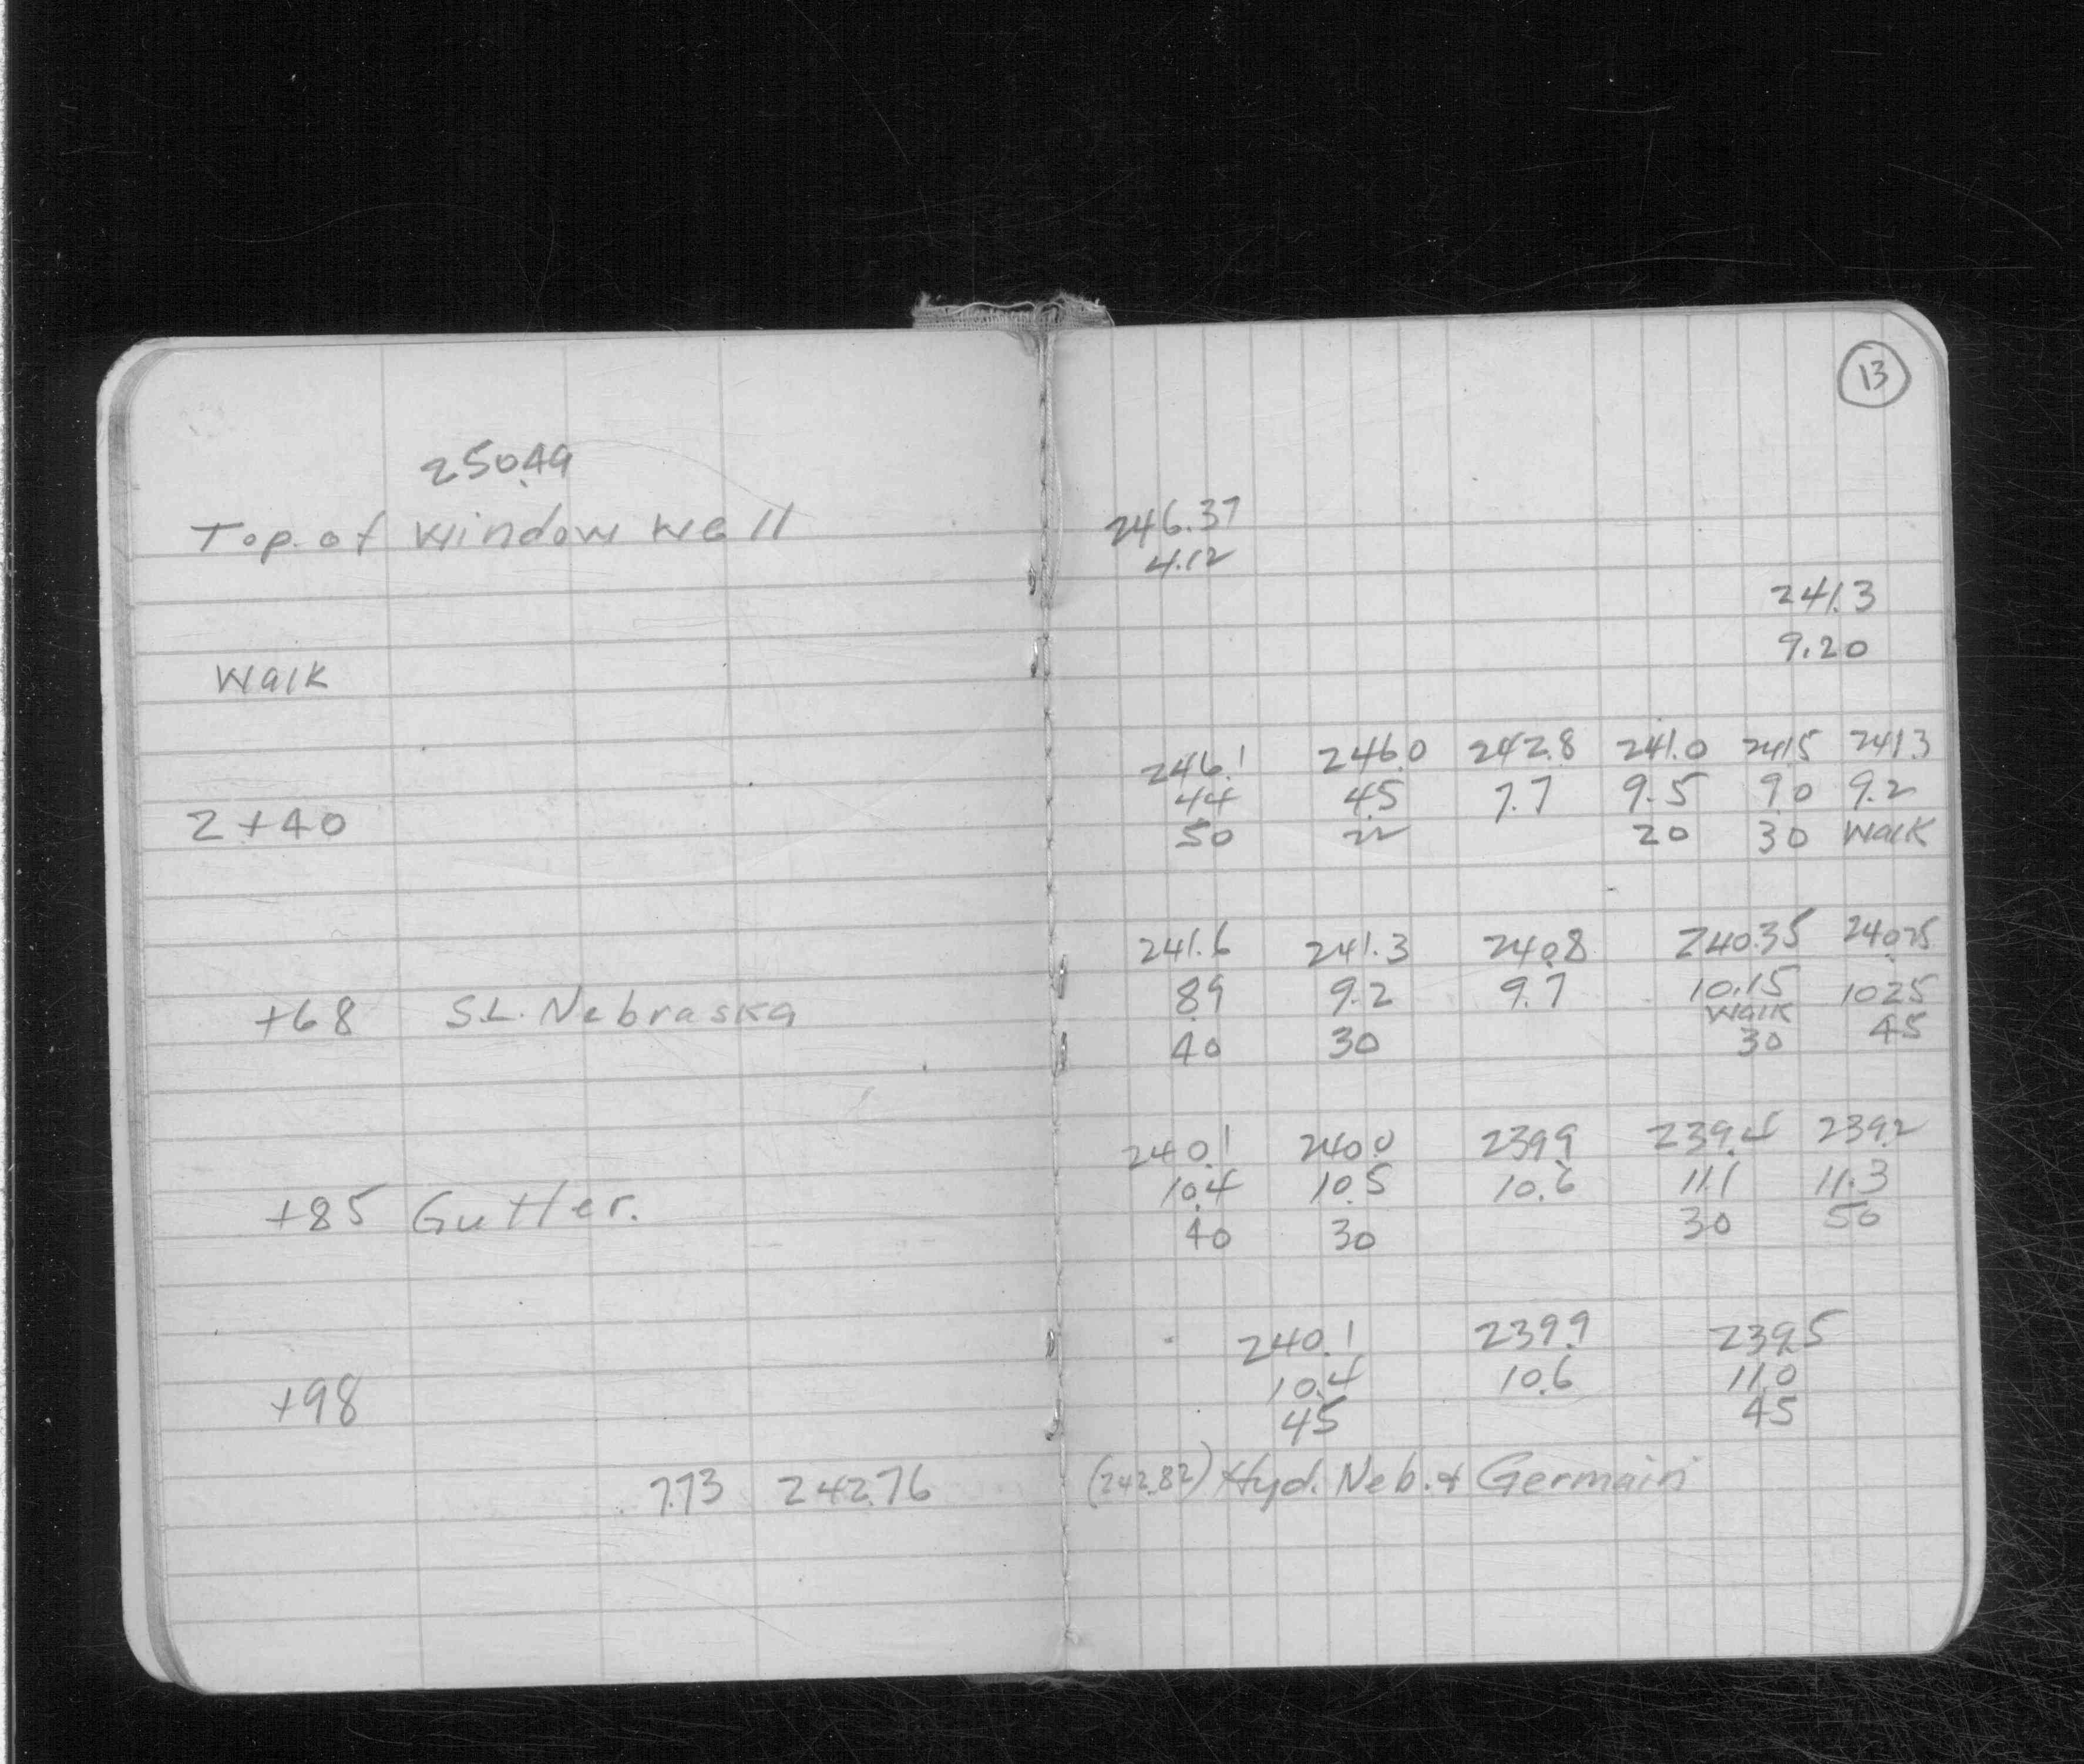 13
250.49
Top. of window well
246.37
4.12
241.3
9.20
Walk
246.1 246.0 242.8 241.0 241.5 241.3
4.4 4.5 7.7 9.5 9.0 9.2
2+40 50 22 20 30 Walk
241.6 241.3 240.8 240.35 240.25
8.9 9.2 9.7 10.15 10.25
+68 S.L. Nebraska Walk
40 30 30 45
240.1 240.0 239.9 239.4 239.2
10.4 10.5 10.6 11.1 11.3
+85 Gutter. 40 30 30 50
240.1 239.9 239.5
10.4 10.6 11.0
+98 45 45
7.73 242.76 (242.82) Hyd. Neb. & Germain